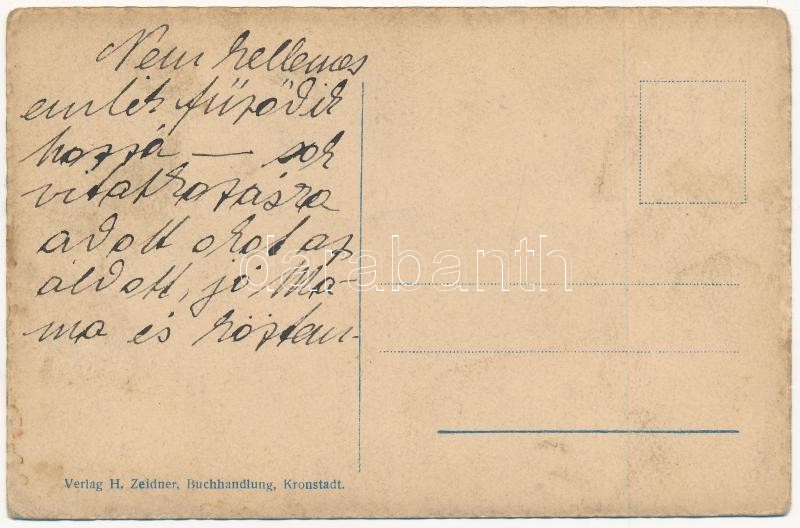 Nem kellemes
emlék fűződik
hozzá — sok
vitatkozásra
adott okot az
áldott, jó Ma-
ma és köztem-
darabanth
Verlag H. Zeidner, Buchhandlung, Kronstadt.